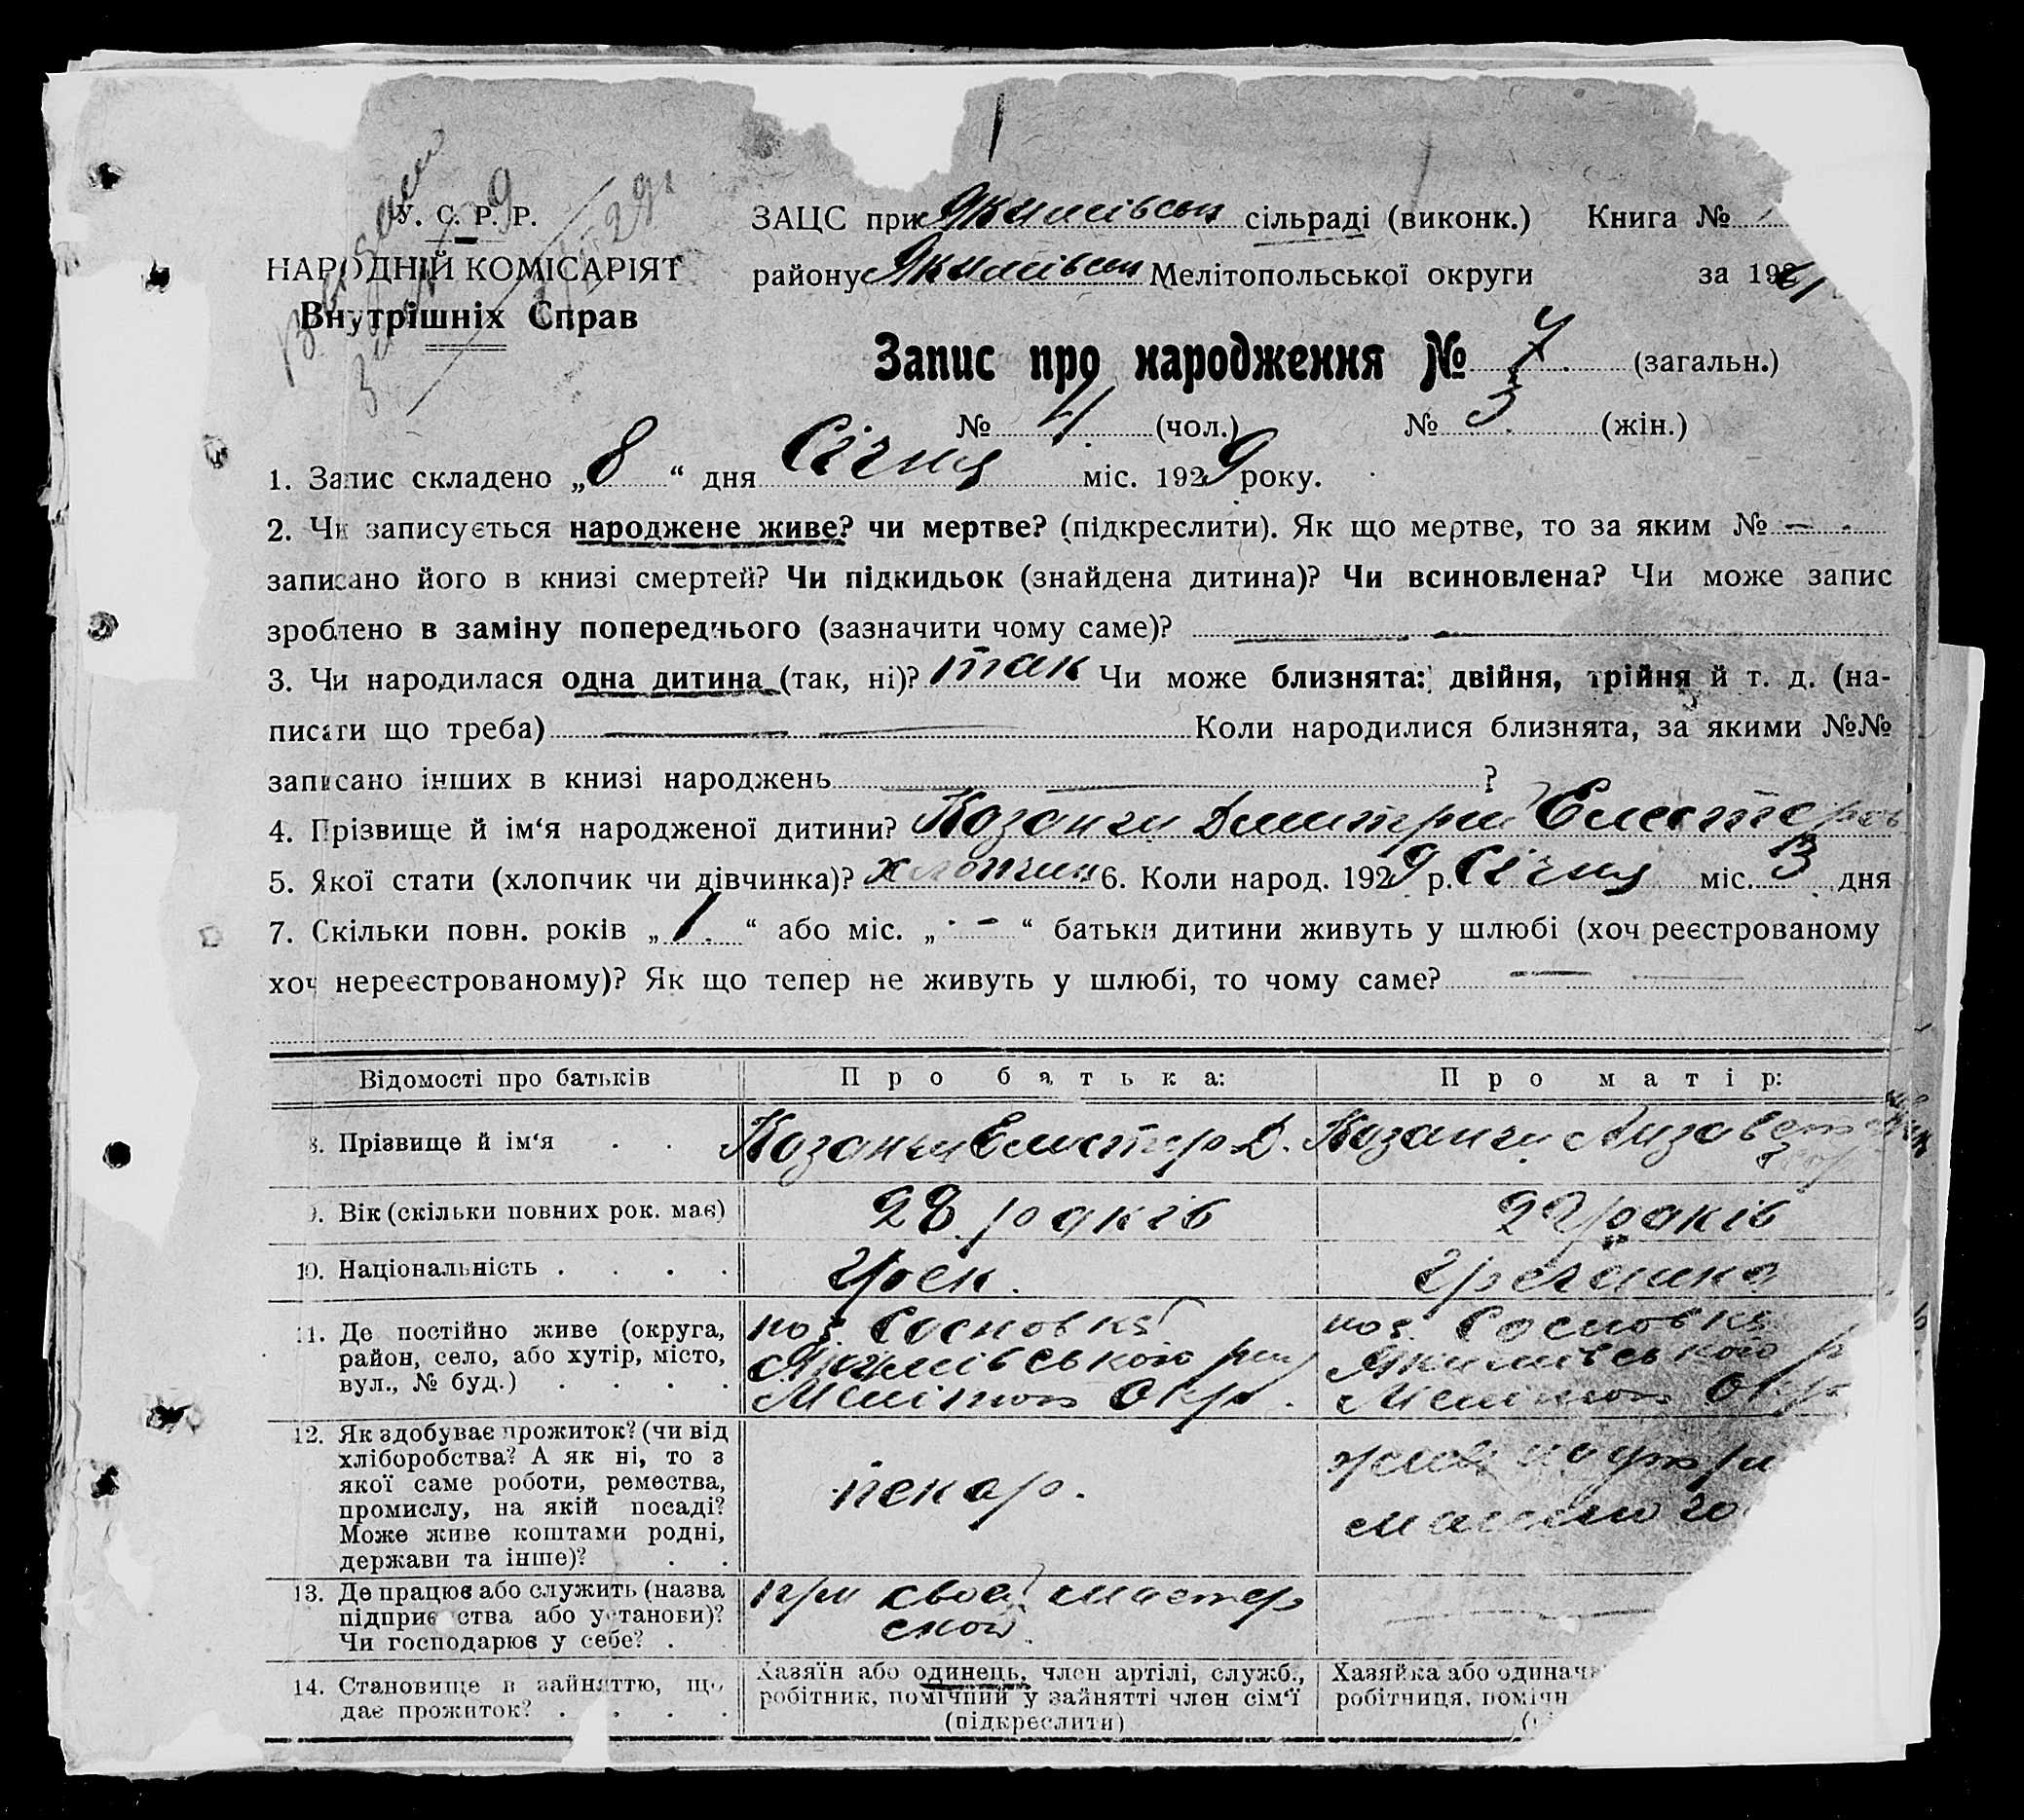 У. С. Р. Р.
НАРОДНІЙ КОМІСАРІЯТ
Внутрішніх Справ
ЗАЦС при Якимівськ сільраді (виконк.) Книга №
району Якимівськ Мелітопольської округи за 192
Запис про народження № 7 (загальн.)
№ 4 (чол.) № 3 (жін.)
1. Запис складено „8“ дня Січня міс. 1929 року.
2. Чи записується народжене живе? чи мертве? (підкреслити). Як що мертве, то за яким № —
записано його в книзі смертей? Чи підкидьок (знайдена дитина)? Чи всиновлена? Чи може запис
зроблено в заміну попереднього (зазначити чому саме)? —
3. Чи народилася одна дитина (так, ні)? так Чи може близнята: двійня, трійня й т. д. (на-
писати що треба) — Коли народилися близнята, за якими №№
записано інших в книзі народжень — ?
4. Прізвище й ім‘я народженої дитини? Козанжи Дмитрий
5. Якої стати (хлопчик чи дівчинка)? хлопчик 6. Коли народ. 1929 р. Січня міс. 3 дня
7. Скільки повн. років „1“ або міс. „—“ батьки дитини живуть у шлюбі (хоч реєстрованому
хоч нереєстрованому)? Як що тепер не живуть у шлюбі, то чому саме? —
Відомості про батьків Про батька: Про матір:
8. Прізвище й ім‘я Козанжи Елевтер Д. Козанжи Лизавета
9. Вік (скільки повних рок. має) 28 років 22 років
10. Національність Грек. Гречанка
11. Де постійно живе (округа, район, село, або хутір, місто, вул., № буд.)
пос. Сосновка
Якимівського рай
Меліtop Окр.
пос. Сосновка
Якимівського р
Меліtop Окр
12. Як здобуває прожиток? (чи від
хліборобства? А як ні, то з
якої саме роботи, ремества,
промислу, на якій посаді?
Може живе коштами родні,
держави та інше)?
пекар.
13. Де працює або служить (назва
підприємства або установи)?
Чи господарює у себе?
при своей мастер
ской.
14. Становище в зайняттю, що
дає прожиток?
Хазяїн або одинець, член артілі, служб.,
робітник, помічний у зайнятті член сім‘ї
(підкреслити)
Хазяйка або одинач
робітниця, помічн